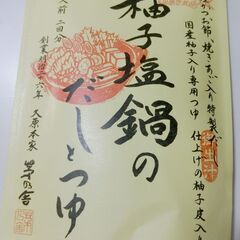 かつお節、焼きあご入り特製だし
国産柚子入り専用つゆ 仕上げの柚子皮入り
柚子塩鍋の
だしとつゆ
人前 二回分
創業明治二十六年 久原本家 茅乃舎